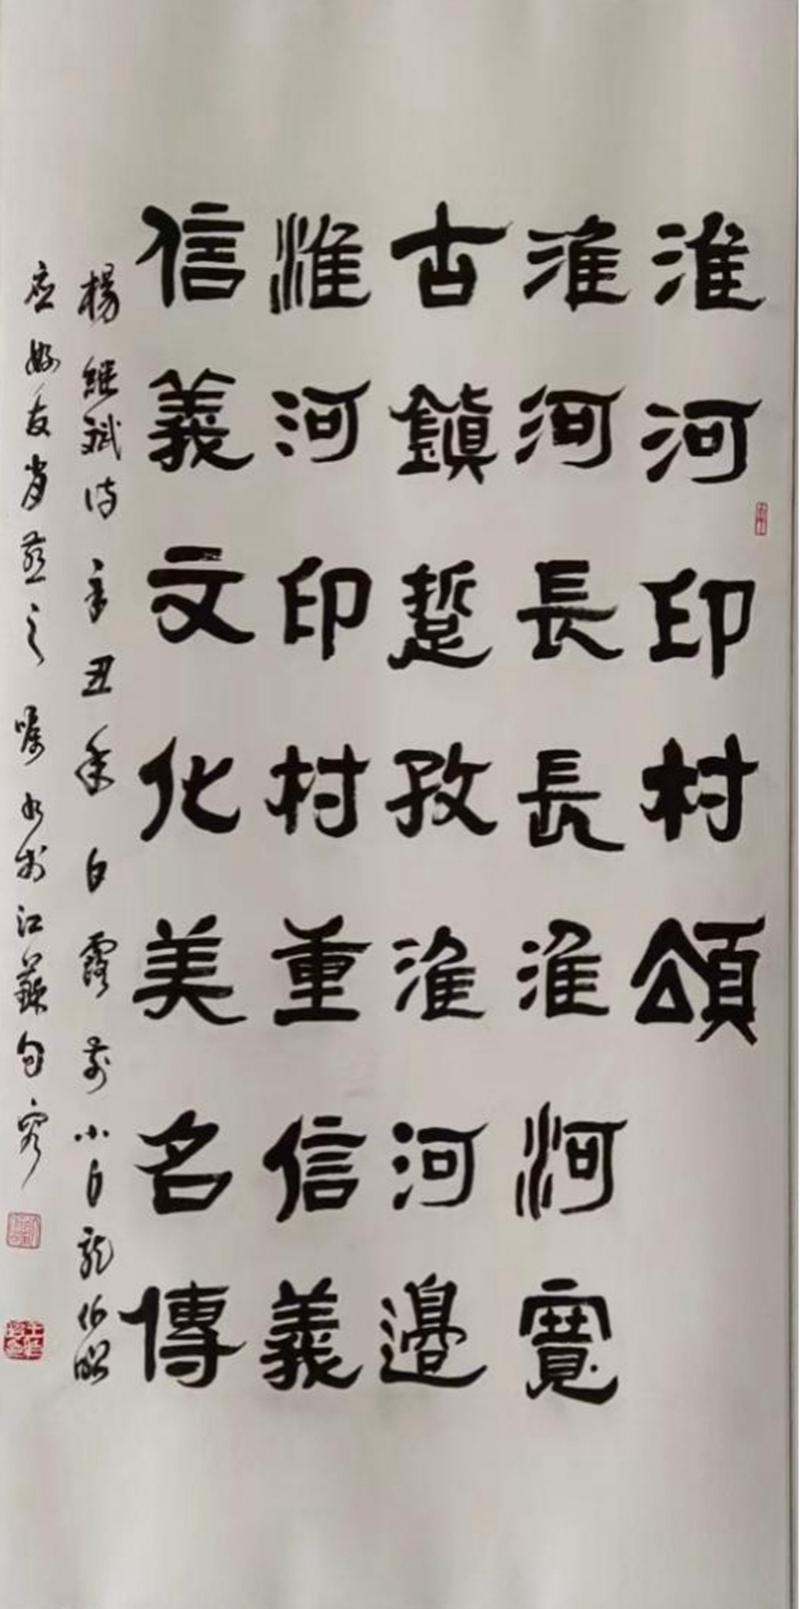 淮河印村頌
淮河長長淮河寬
古鎮踅孜淮河邊
淮河印村重信義
信義文化美名傳
楊繼斌詩辛丑年白露前小白龍伯昭
應好友肖燕之囑书於江蘇句容